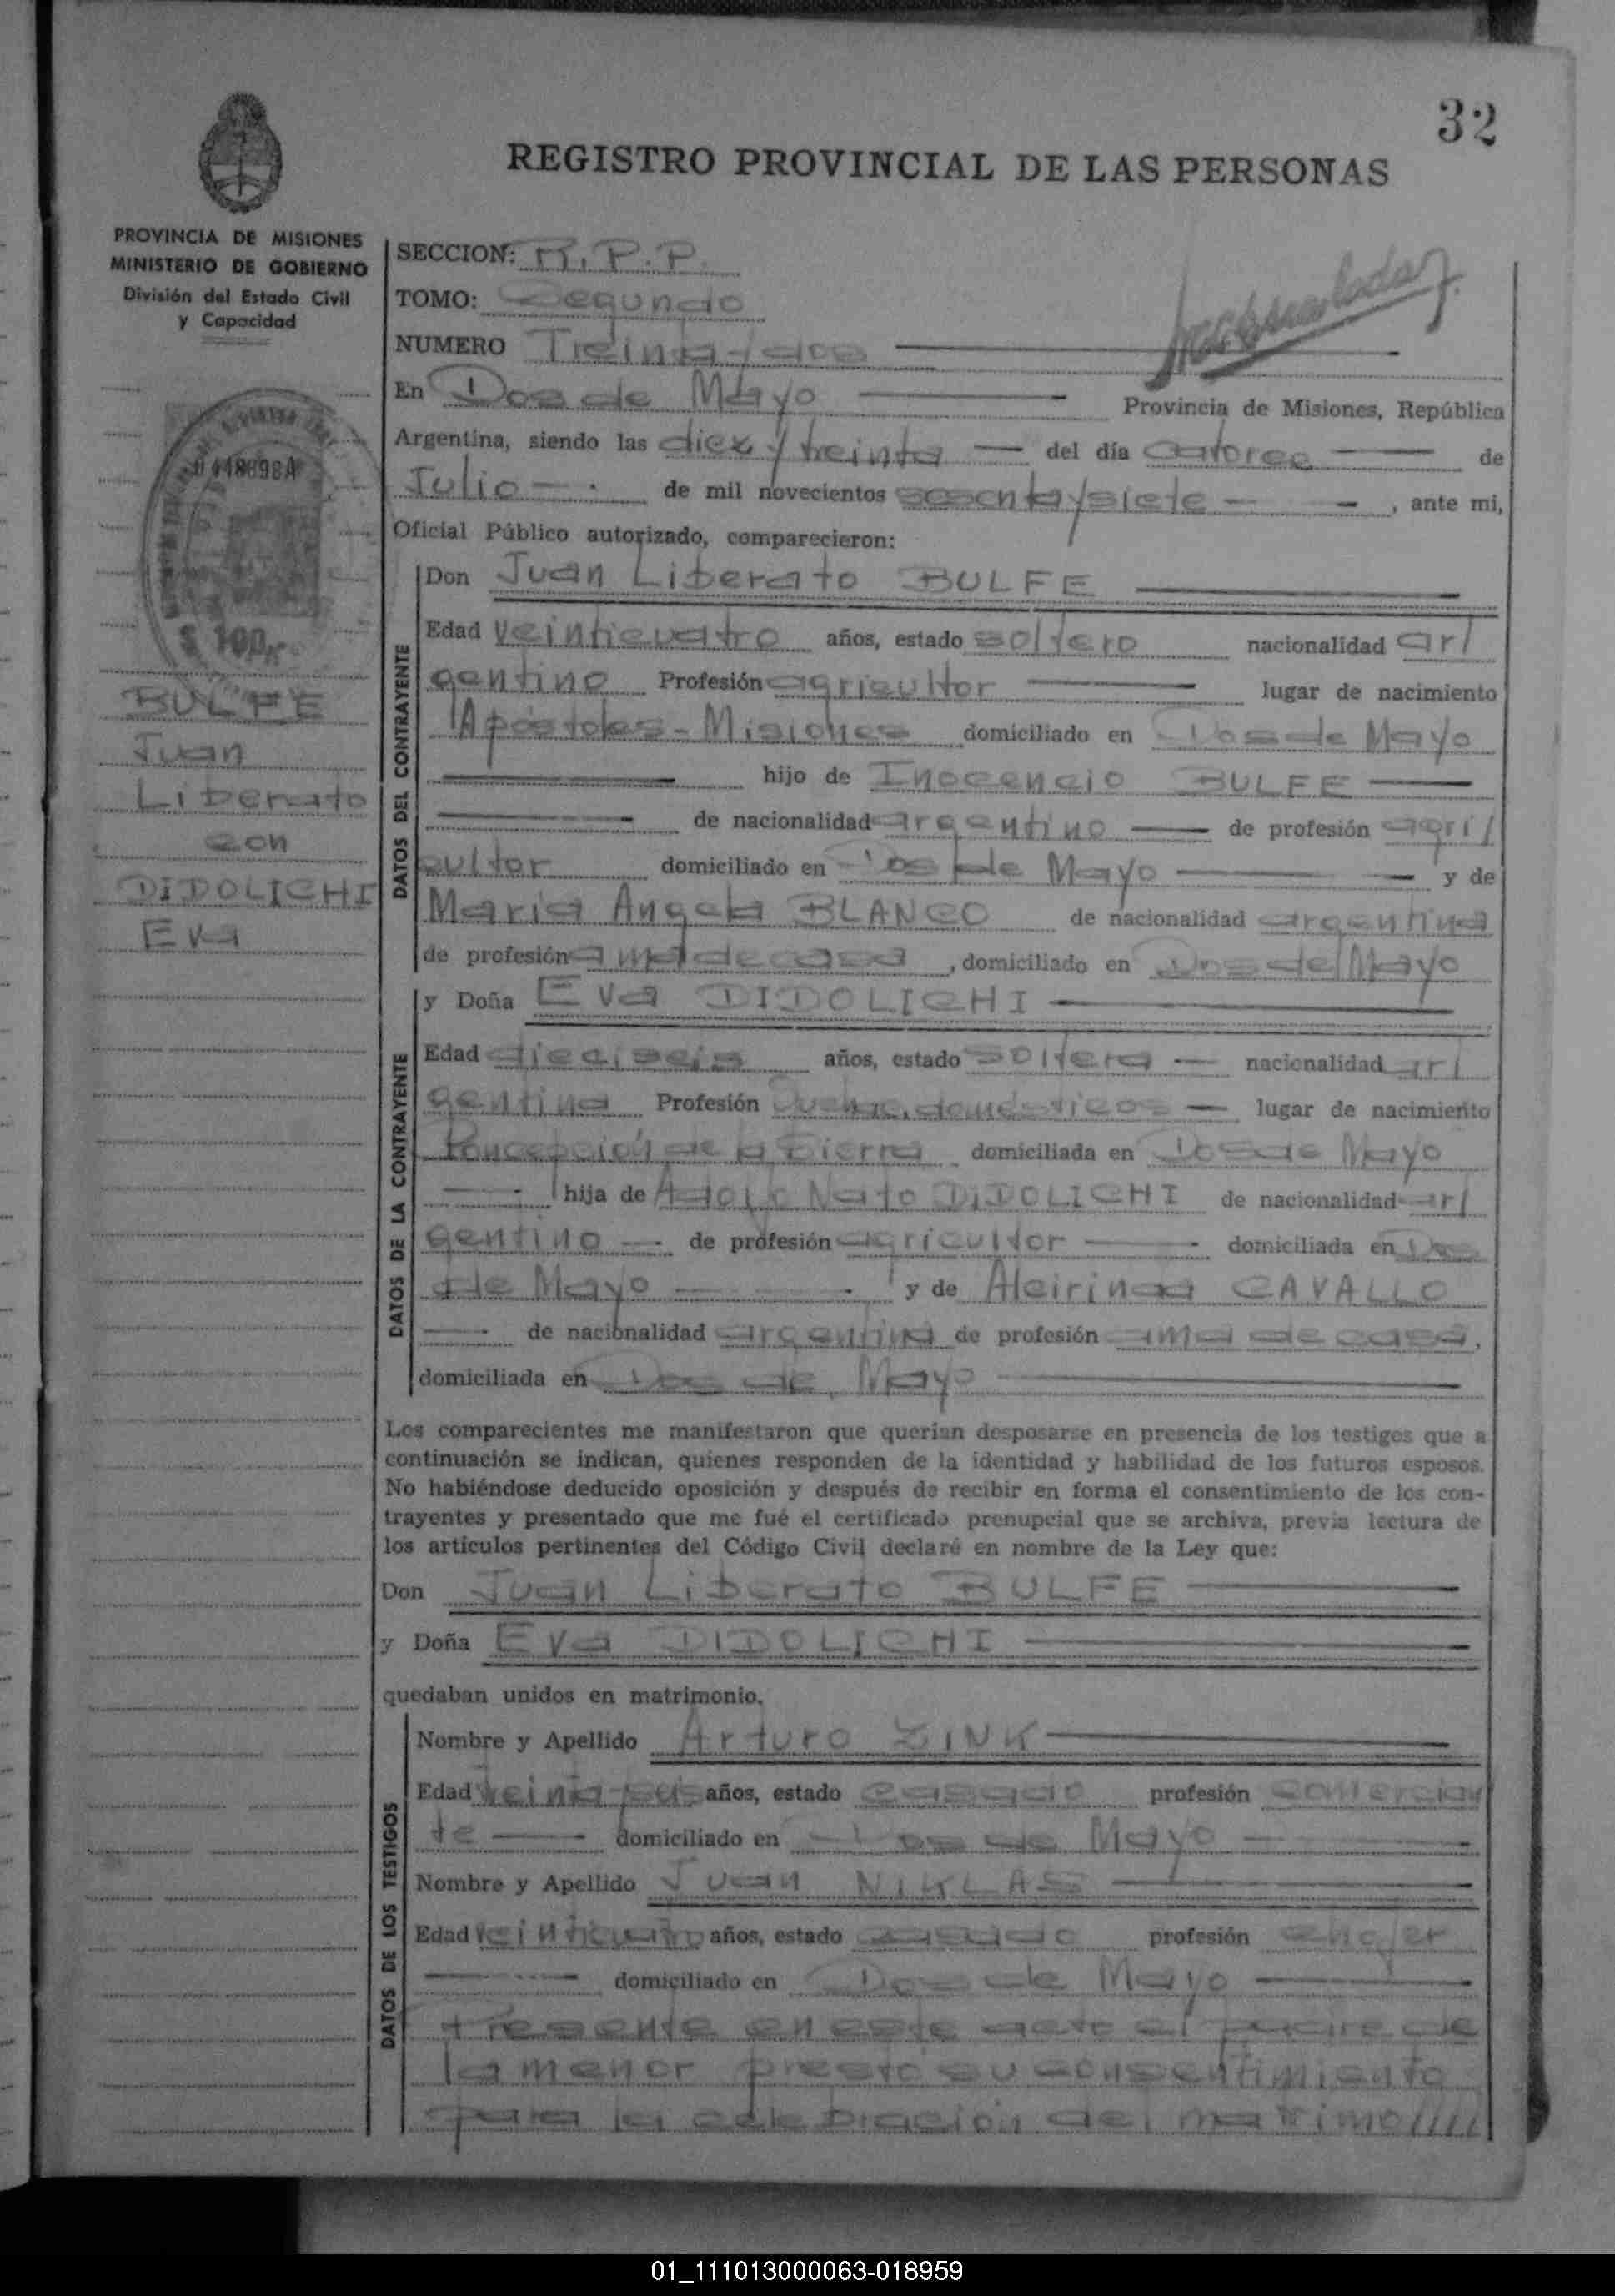 32
REGISTRO PROVINCIAL DE LAS PERSONAS
PROVINCIA DE MISIONES
MINISTERIO DE GOBIERNO
División del Estado Civil
y Capacidad
SECCION: R.P.P.
TOMO: Segundo
NUMERO Treinta y dos
En Dos de Mayo Provincia de Misiones, República
Argentina, siendo las diez y treinta del día catorce de
Julio de mil novecientos sesenta y siete, ante mi,
Oficial Público autorizado, comparecieron:
$ 100
BULFE
Juan
Liberato
con
DIDOLICHI
Eva
DATOS DEL CONTRAYENTE
Don Juan Liberato BULFE
Edad veinticuatro años, estado soltero nacionalidad ar/
gentino Profesión agricultor lugar de nacimiento
Apóstoles - Misiones domiciliado en Dos de Mayo
hijo de Inocencio BULFE
de nacionalidad argentino de profesión agri/
cultor domiciliado en Dos de Mayo y de
Maria Angela BLANCO de nacionalidad argentina
de profesión ama de casa, domiciliado en Dos de Mayo
DATOS DE LA CONTRAYENTE
y Doña Eva DIDOLICHI
Edad dieciseis años, estado soltera nacionalidad ar/
gentina Profesión Quehac. domésticos lugar de nacimiento
Concepción de la Sierra domiciliada en Dos de Mayo
hija de Adolfo DIDOLICHI de nacionalidad ar/
gentino de profesión agricultor domiciliada en Dos
de Mayo y de Alcirina CAVALLO
de nacionalidad argentina de profesión ama de casa,
domiciliada en Dos de Mayo
Los comparecientes me manifestaron que querían desposarse en presencia de los testigos que a
continuación se indican, quienes responden de la identidad y habilidad de los futuros esposos.
No habiéndose deducido oposición y después de recibir en forma el consentimiento de los con-
trayentes y presentado que me fué el certificado prenupcial que se archiva, previa lectura de
los artículos pertinentes del Código Civil declaré en nombre de la Ley que:
Don Juan Liberato BULFE
y Doña Eva DIDOLICHI
quedaban unidos en matrimonio.
DATOS DE LOS TESTIGOS
Nombre y Apellido Arturo ZINK
Edad años, estado casado profesión comercian
te domiciliado en Dos de Mayo
Nombre y Apellido Juan NIKLAS
Edad veinticuatro años, estado casado profesión chofer
domiciliado en Dos de Mayo
Presente en este acto el padre de
la menor prestó su consentimiento
para la celebración del matrimo/////
01_111013000063-018959